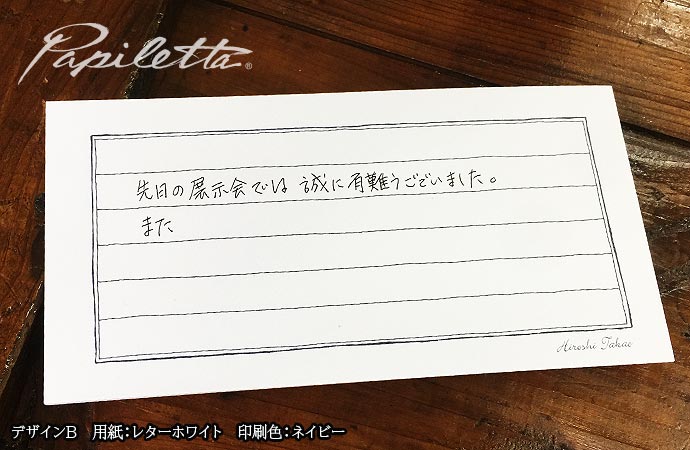 Papiletta®
先日の展示会では 誠に有難うございました。
また
Hiroshi Takao
デザインB 用紙：レターホワイト 印刷色：ネイビー